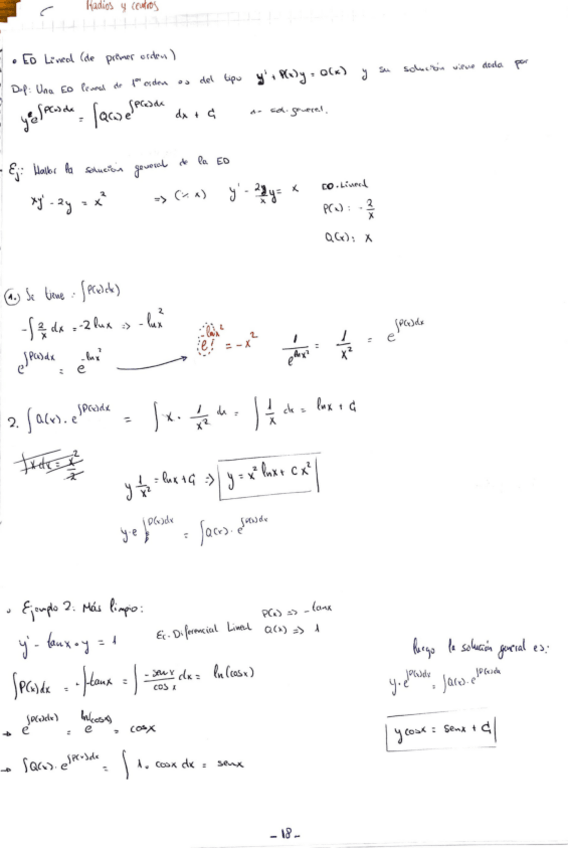 Radios y centros
• ED Lineal (de primer orden)
Def: Una ED lineal de 1er orden es del tipo y' + P(x)y = Q(x) y su solución viene dada por
y·e^∫P(x)dx = ∫Q(x) e^∫P(x)dx dx + C₁ sol. general.
Ej: Hallar la solución general de la ED
xy' - 2y = x² => (÷x) y' - 2y/x = x ED. Lineal
P(x): -2/x
Q(x): x
1. Se tiene: ∫P(x)dx)
-∫2/x dx = -2 lnx => -lnx²
e^∫P(x)dx = e^-lnx² → e^-lnx² = -x² 1/e^lnx² = 1/x² = e^∫P(x)dx
2. ∫Q(x)·e^∫P(x)dx = ∫x · 1/x² dx = ∫1/x dx = lnx + C₁
∫x dx = x²/2
y 1/x² = lnx + C₁ => y = x² lnx + Cx²
y·e^∫P(x)dx = ∫Q(x)·e^∫P(x)dx
• Ejemplo 2: Más limpio:
y' - tanx · y = 1 Ec. Diferencial Lineal P(x) => -tanx
Q(x) => 1
∫P(x)dx = -∫tanx = ∫ -senx/cosx dx = ln(cosx)
→ e^∫P(x)dx) = e^ln(cosx) = cosx
→ ∫Q(x)·e^∫P(x)dx = ∫1·cosx dx = senx
luego la solución general es:
y·e^∫P(x)dx = ∫Q(x)·e^∫P(x)dx
y cosx = senx + C₁
-18-